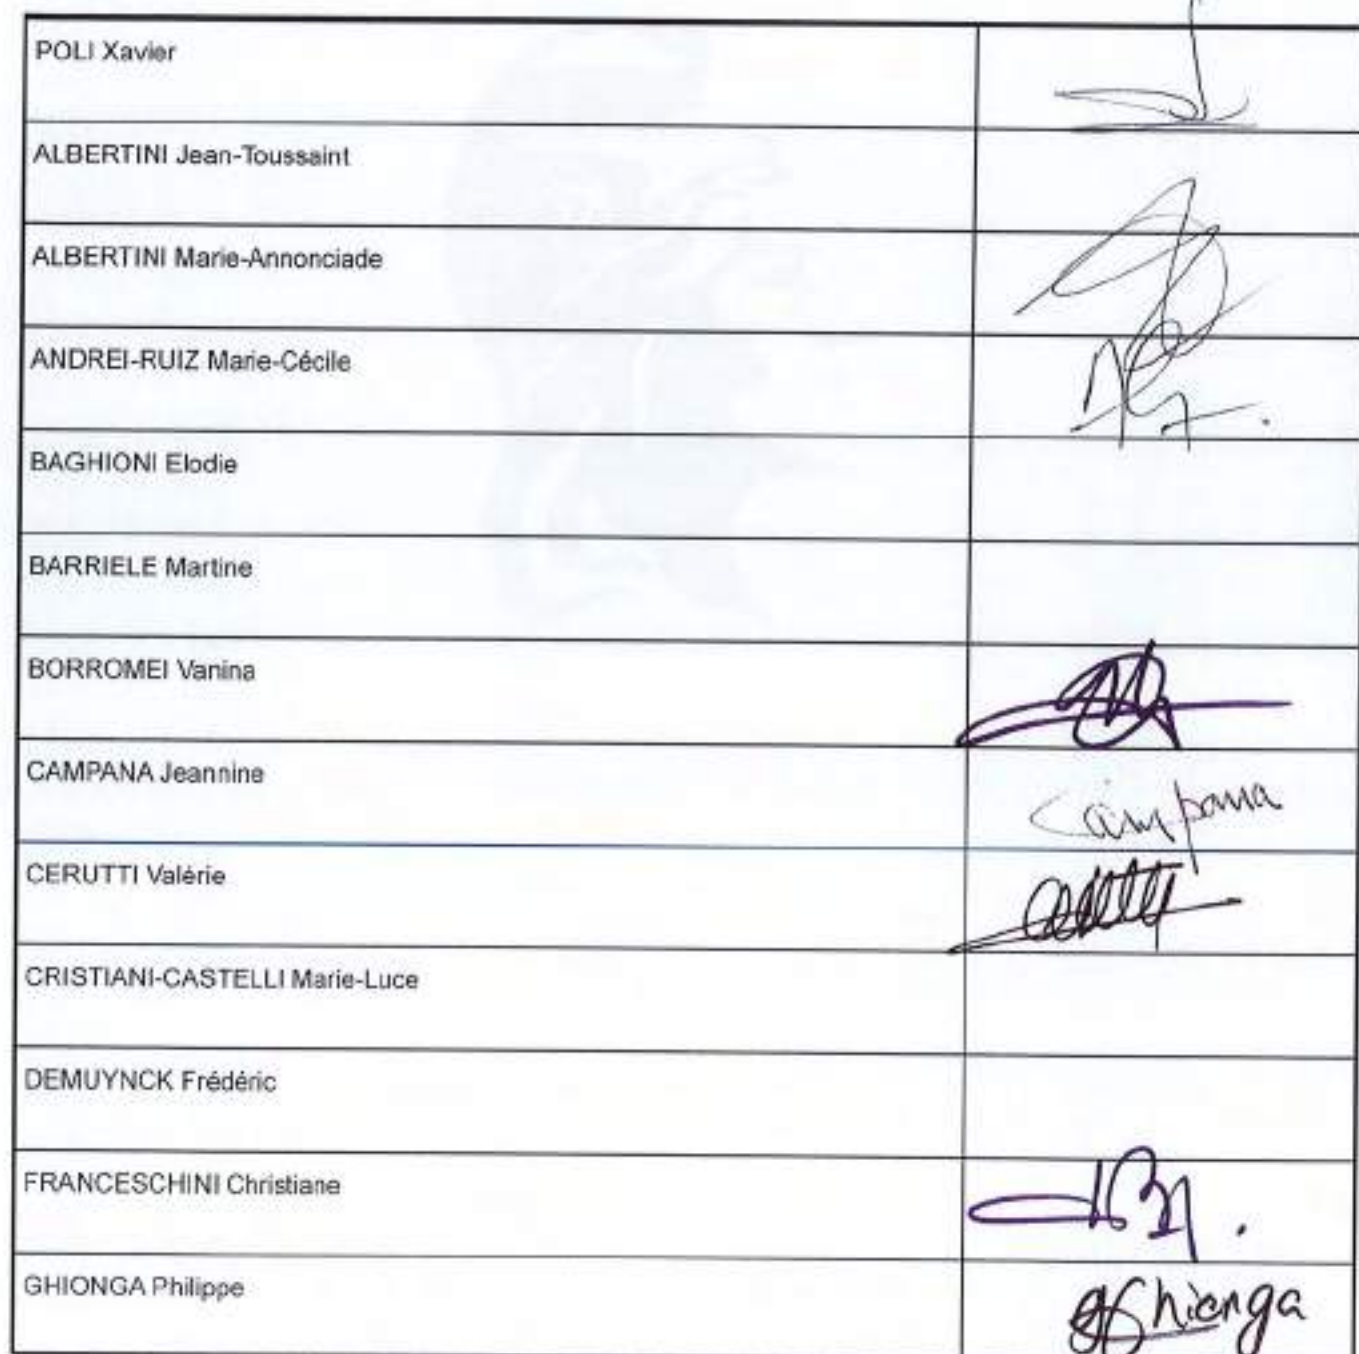 POLI Xavier
ALBERTINI Jean-Toussaint
ALBERTINI Marie-Annonciade
ANDREI-RUIZ Marie-Cécile
BAGHIONI Elodie
BARRIELE Martine
BORROMEI Vanina
CAMPANA Jeannine
Campana
CERUTTI Valérie
CRISTIANI-CASTELLI Marie-Luce
DEMUYNCK Frédéric
FRANCESCHINI Christiane
GHIONGA Philippe
Ghionga